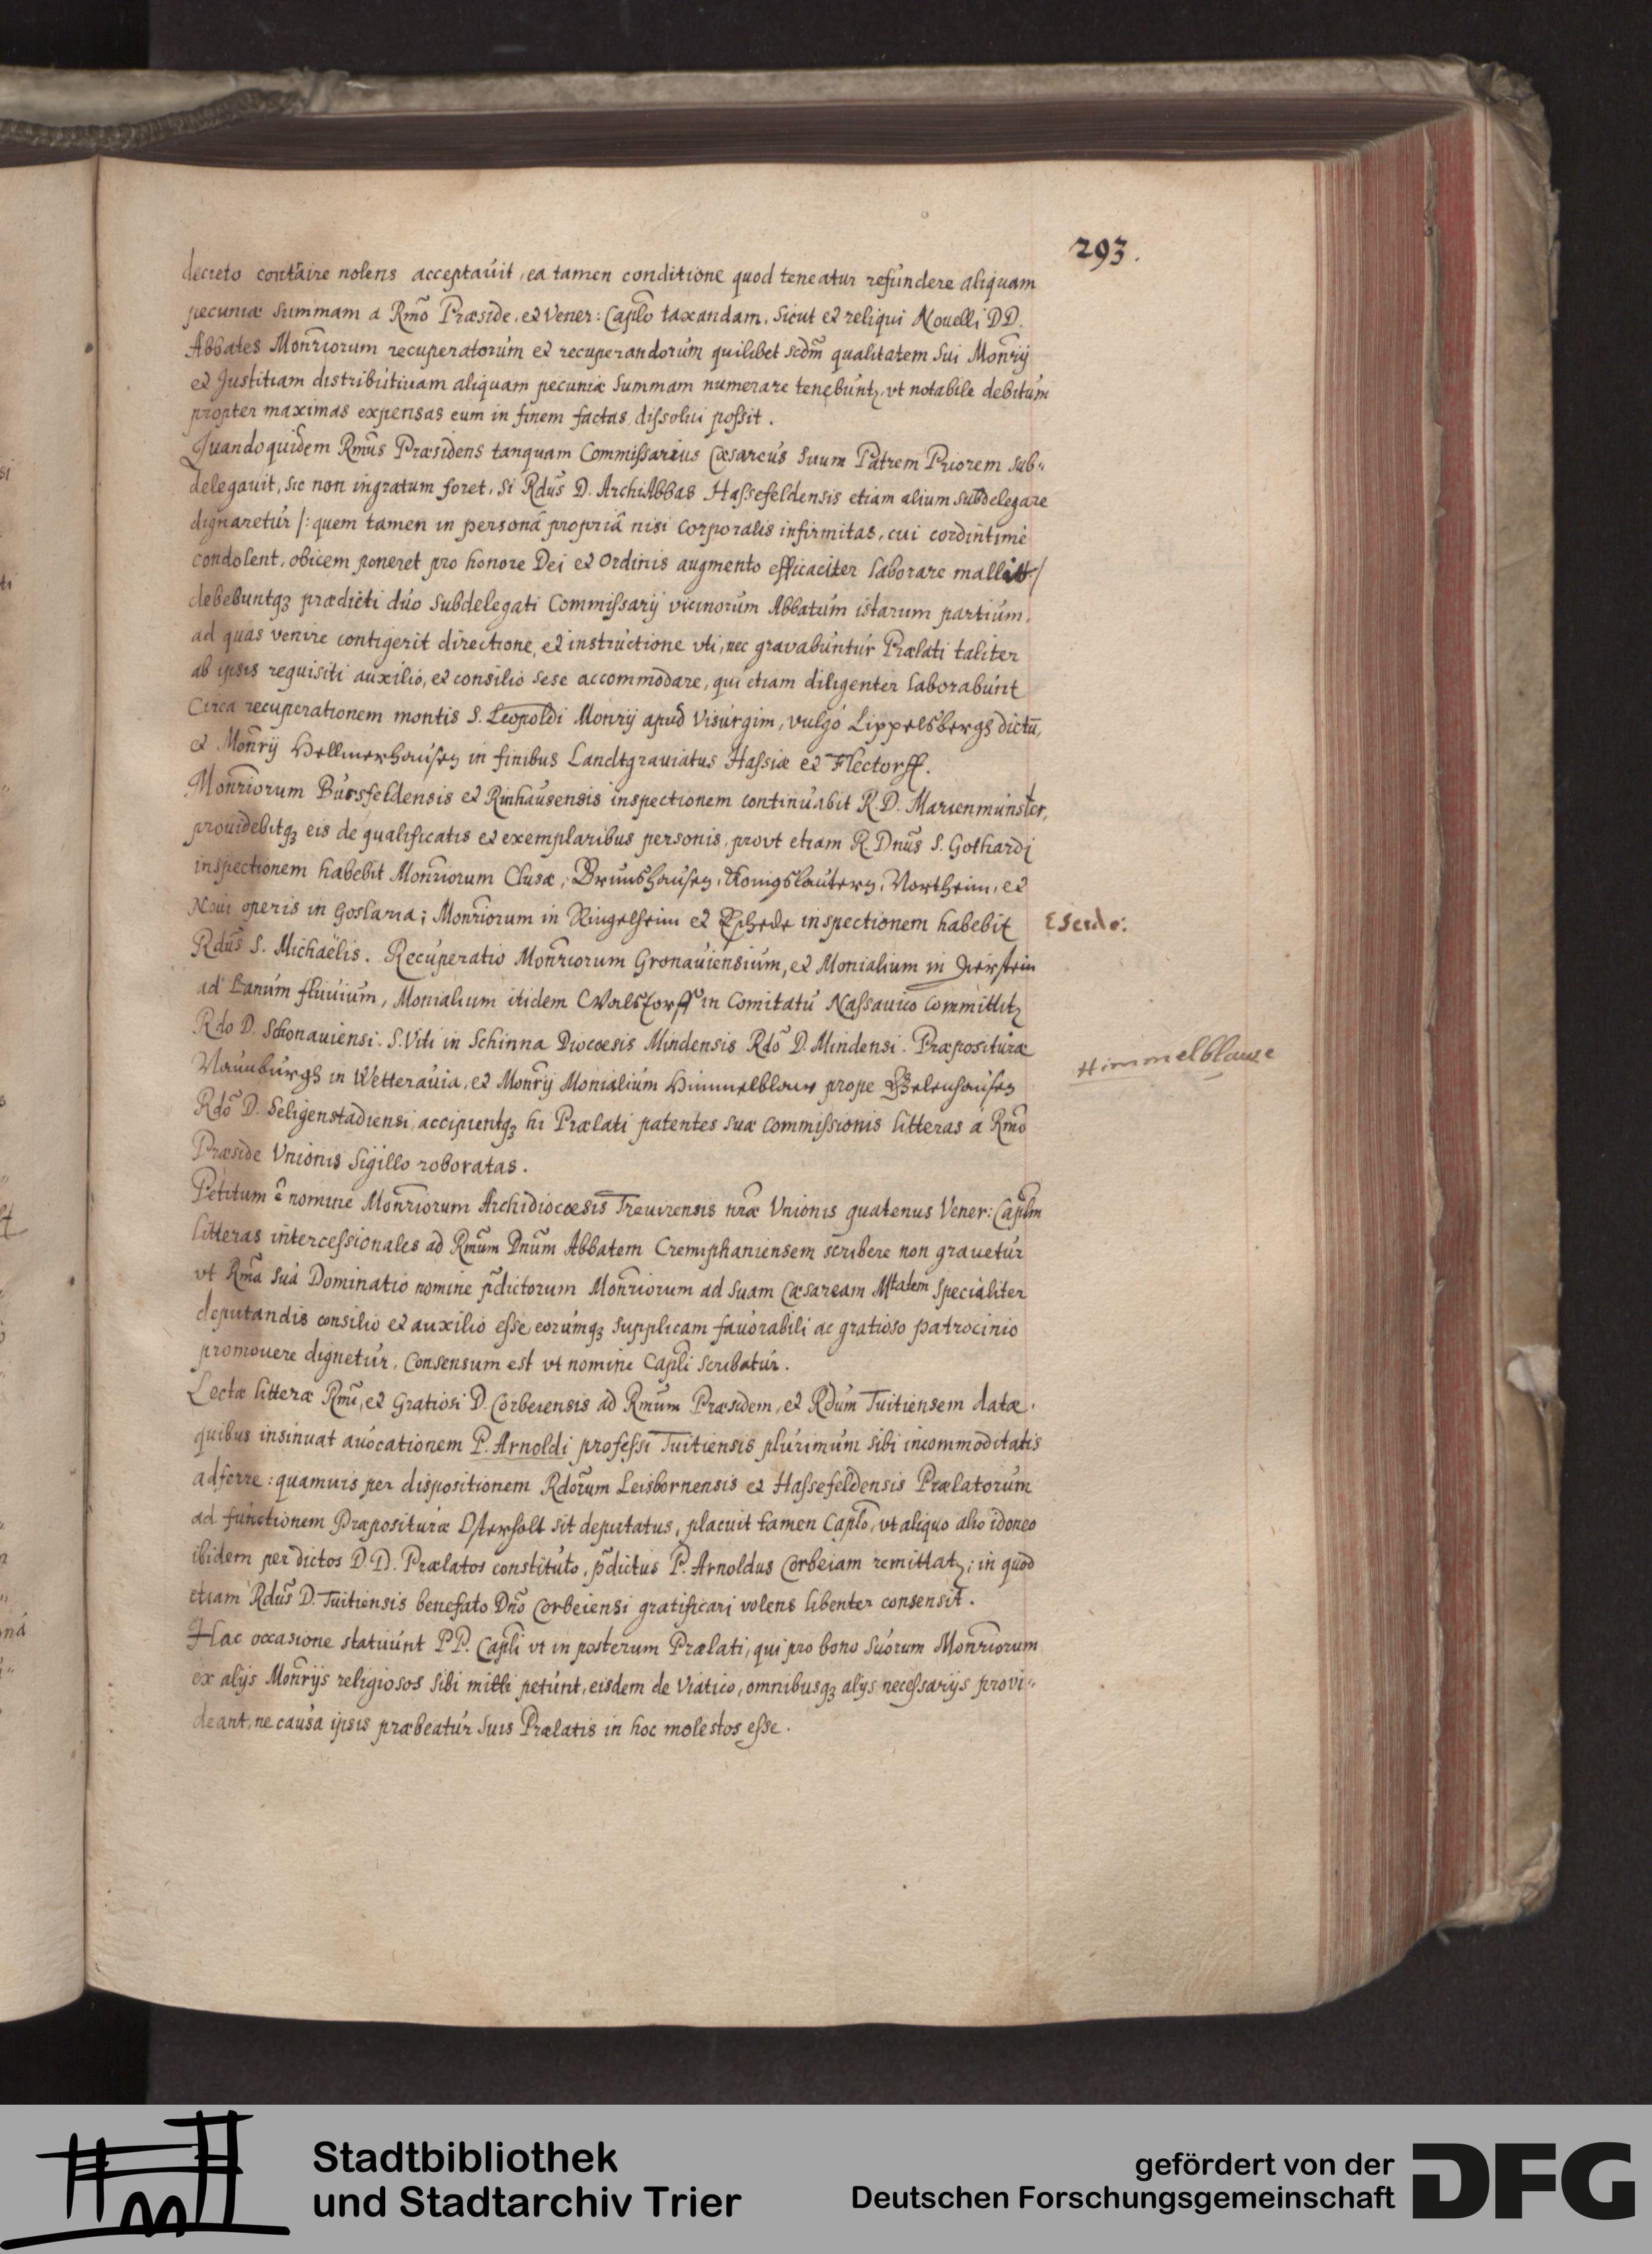 293.
decreto contraire nolens acceptavit, ea tamen conditione quod teneatur refundere aliquam
pecuniæ summam a Rmo Præside, et Vener: Caplo taxandam, sicut et reliqui Nouelli DD.
Abbates Monriorum recuperatorum et recuperandorum quilibet scdm qualitatem sui Monrij
et Justitiam distributiuam aliquam pecuniæ summam numerare tenebuntz, vt notabile debitum
propter maximas expensas eum in finem factas dissolui possit.
Quandoquidem Rmus Præsidens tanquam Commissarius Cæsareus suum Patrem Priorem sub„
delegauit, sic non ingratum foret, si Rdus D. ArchiAbbas Hassefeldensis etiam alium subdelegare
dignaretur /: quem tamen in personâ propriâ nisi corporalis infirmitas, cui cordintimè
condolent, obicem poneret pro honore Dei et Ordinis augmento efficaciter laborare mallet :/
debebuntqз prædicti duo subdelegati Commissarij vicinorum Abbatum istarum partium,
ad quas venire contigerit directione, et instructione vti, nec gravabuntur Prælati taliter
ab ipsis requisiti auxilio, et consilio sese accommodare, qui etiam diligenter laborabunt
Circa recuperationem montis S. Leopoldi Monrij apud Visurgim, vulgò Lippelsbergs dictu,
et Monrij Hellmershausen in finibus Landtgrauiatus Hassiæ et Flectorff.
Monriorum Bursfeldensis et Rinhausensis inspectionem continuabit R. D. Marienmunster,
prouidebitqз eis de qualificatis et exemplaribus personis, provt etiam R. Dnus S. Gothardi
inspectionem habebit Monriorum Clusæ, Brunshausen, Konigslautern, Northeim, et
Noui operis in Goslaria; Monriorum in Ringelheim et Eschede inspectionem habebit
Escerde:
Rdus S. Michaëlis. Recuperatio Monriorum Gronauiensium, et Monialium in Dierstein
ad Lanum fluuium, Monialium itidem Walsdorff in Comitatu Nassauico committitz
Rdo D. Schonauiensi. S. Viti in Schinna Diocœsis Mindensis Rdo D. Mindensi. Præposituræ
Naumburgh in Wetterauia, et Monrij Monialium Himmelblauw prope Gelenhausen
Himmelblauze
Rdo D. Seligenstadiensi, accipientqз hi Prælati patentes suæ commissionis litteras à Rmo
Præside Vnionis sigillo roboratas.
Petitum ê nomine Monriorum Archidiocœsis Treuirensis nræ Vnionis quatenus Vener: Caplm
litteras intercessionales ad Rmum Dnum Abbatem Cremiphaniensem scribere non grauetur
vt Rma sua Dominatio nomine pdictorum Monriorum ad suam Cæsaream Mtatem specialiter
deputandis consilio et auxilio esse, eorumqз supplicam fauorabili ac gratioso patrocinio
promouere dignetur, Consensum est vt nomine Capli scribatur.
Lectæ litteræ Rmi, et Gratiosi D. Corbeiensis ad Rmum Præsidem, et Rdum Tuitiensem datæ,
quibus insinuat auocationem P. Arnoldi professi Tuitiensis plurimum sibi incommoditatis
adferre: quamuis per dispositionem Rdorum Leisbornensis et Hassefeldensis Prælatorum
ad functionem Præposituræ Osterholt sit deputatus, placuit tamen Caplo, vt aliquo alio idoneo
ibidem per dictos D. D. Prælatos constituto, pdictus P. Arnoldus Corbeiam remittatz; in quod
etiam Rdus D. Tuitiensis benefato Dno Corbeiensi gratificari volens libenter consensit.
Hac occasione statuunt PP. Capli vt in posterum Prælati, qui pro bono suorum Monriorum
ex alijs Monrijs religiosos sibi mitti petunt, eisdem de viatico, omnibusqз alijs necessarijs provi„
deant, ne causa ipsis præbeatur suis Prælatis in hoc molestos esse.
Stadtbibliothek
und Stadtarchiv Trier
gefördert von der
Deutschen Forschungsgemeinschaft
DFG